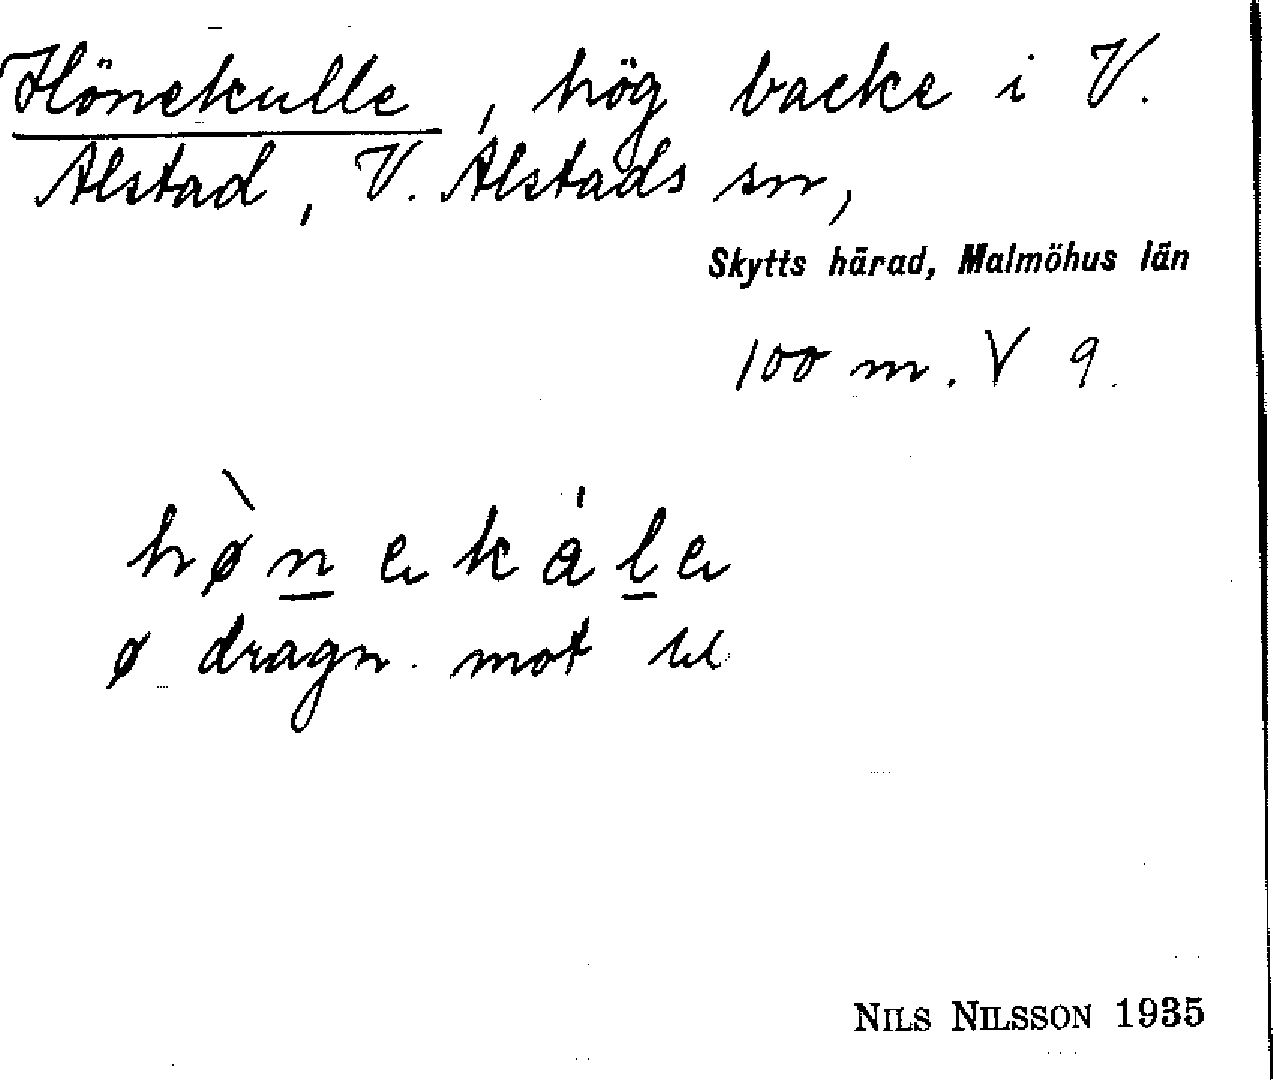 Hönekulle, hög backe i V.
Alstad, V. Alstads sn,
Skytts härad, Malmöhus län
100 m. V 9.
hø̀nekǻle
ø dragn. mot
NILS NILSSON 1935